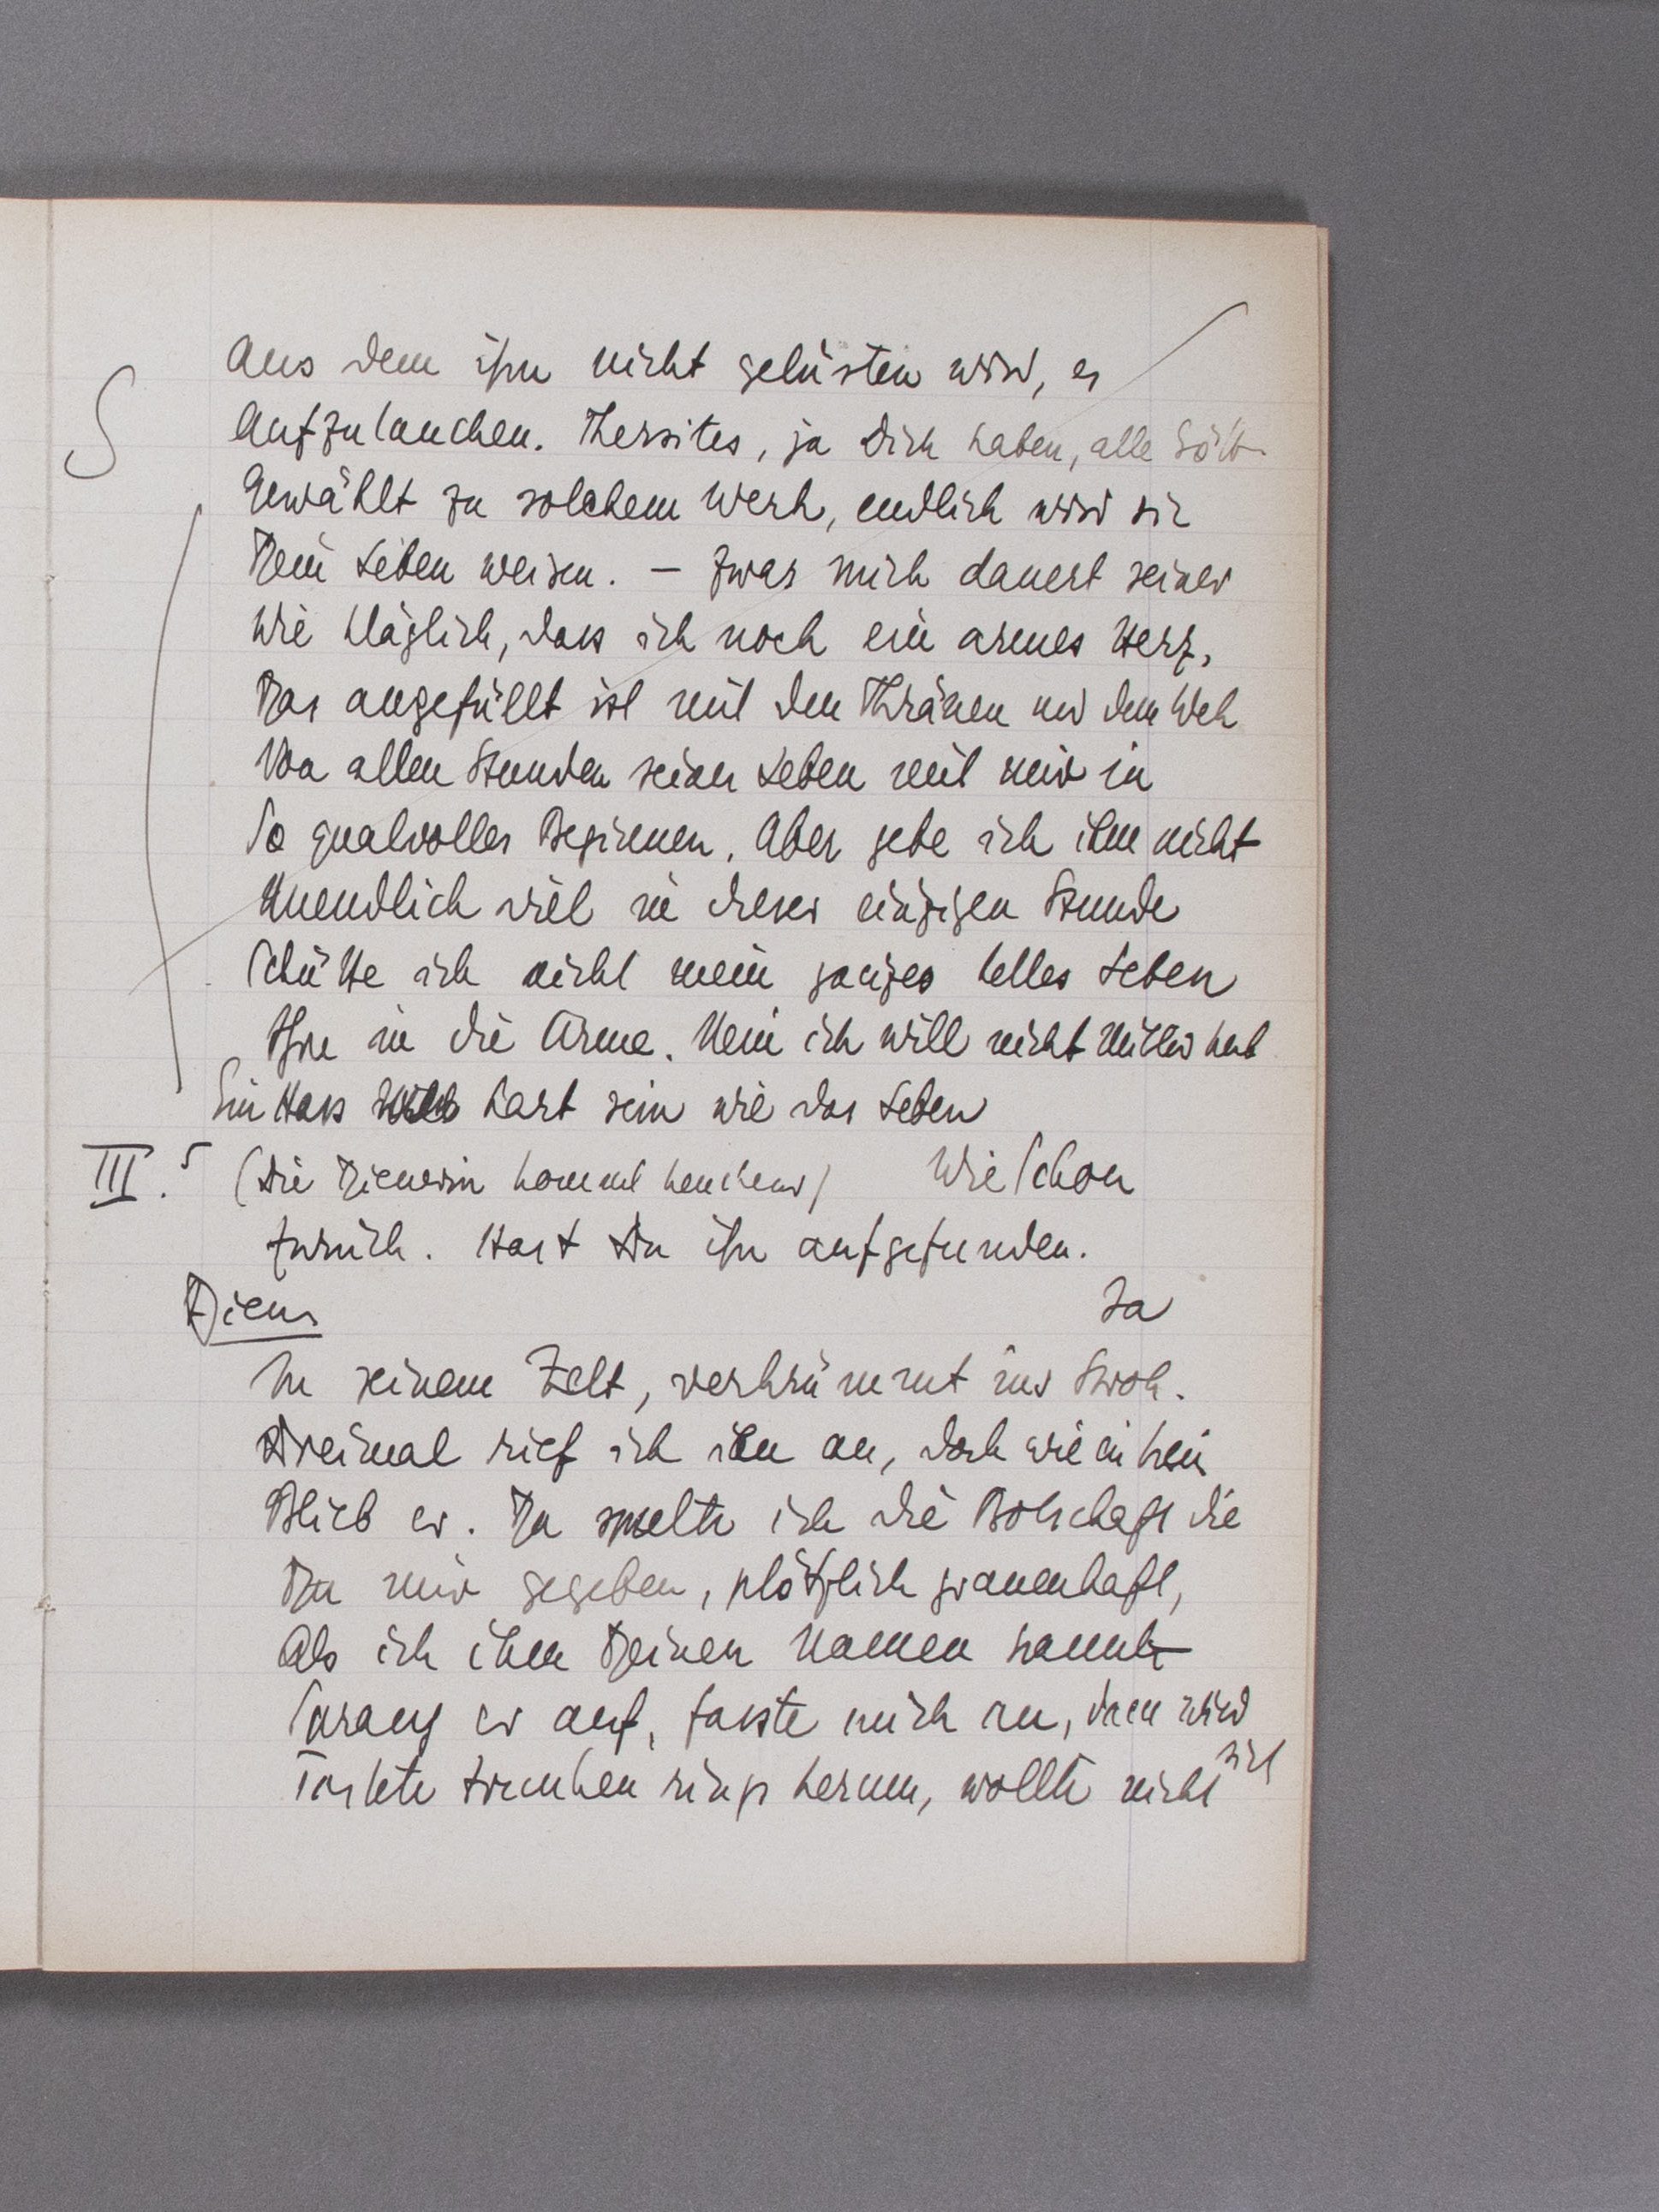 Aus dem ihn nicht gelüsten wird, es
Aufzutauchen. Thersites, ja Dich haben, alle Gött
Gewählt zu solchem Werk, endlich wird sie
Dein Leben weisen. – Zwar mich dauert seiner
Wie kläglich, dass ich noch ein armes Herz,
Das angefüllt ist mit den Thränen und dem Weh
Von allen Stunden seines Lebens mit mir in
So qualvolles Beginnen. Aber gebe ich ihm nicht
Unendlich viel in dieser einzigen Stunde
Schütte ich nicht mein ganzes helles Leben
Ihm in die Arme. Nein ich will nicht Mitleid
Ein Hass hart sein wie das Leben
III. 5 (Die Dienerin kommt keuchend) Wie schon
zurück. Hast Du ihn aufgefunden.
Dien. Ja
In seinem Zelt, verkrümmt ins Stroh.
Dreimal rief ich ihn an, doch wie ein Stein
Blieb er. Da meldte ich die Botschaft die
Du mir gegeben, plötzlich grauenhaft,
Als ich ihm Deinen Namen nannte
Sprang er auf, fasste mich an, dann
Tastete trunken rings herum, wollte nicht